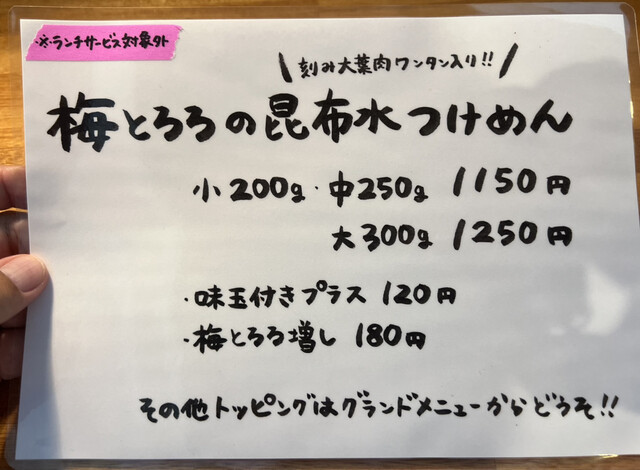 ※ランチサービス対象外
\ 刻み大葉肉ワンタン入り!! /
梅とろろの昆布水つけめん
小200g・中250g 1150円
大300g 1250円
・味玉付きプラス 120円
・梅とろろ増し 180円
その他トッピングはグランドメニューからどうぞ!!